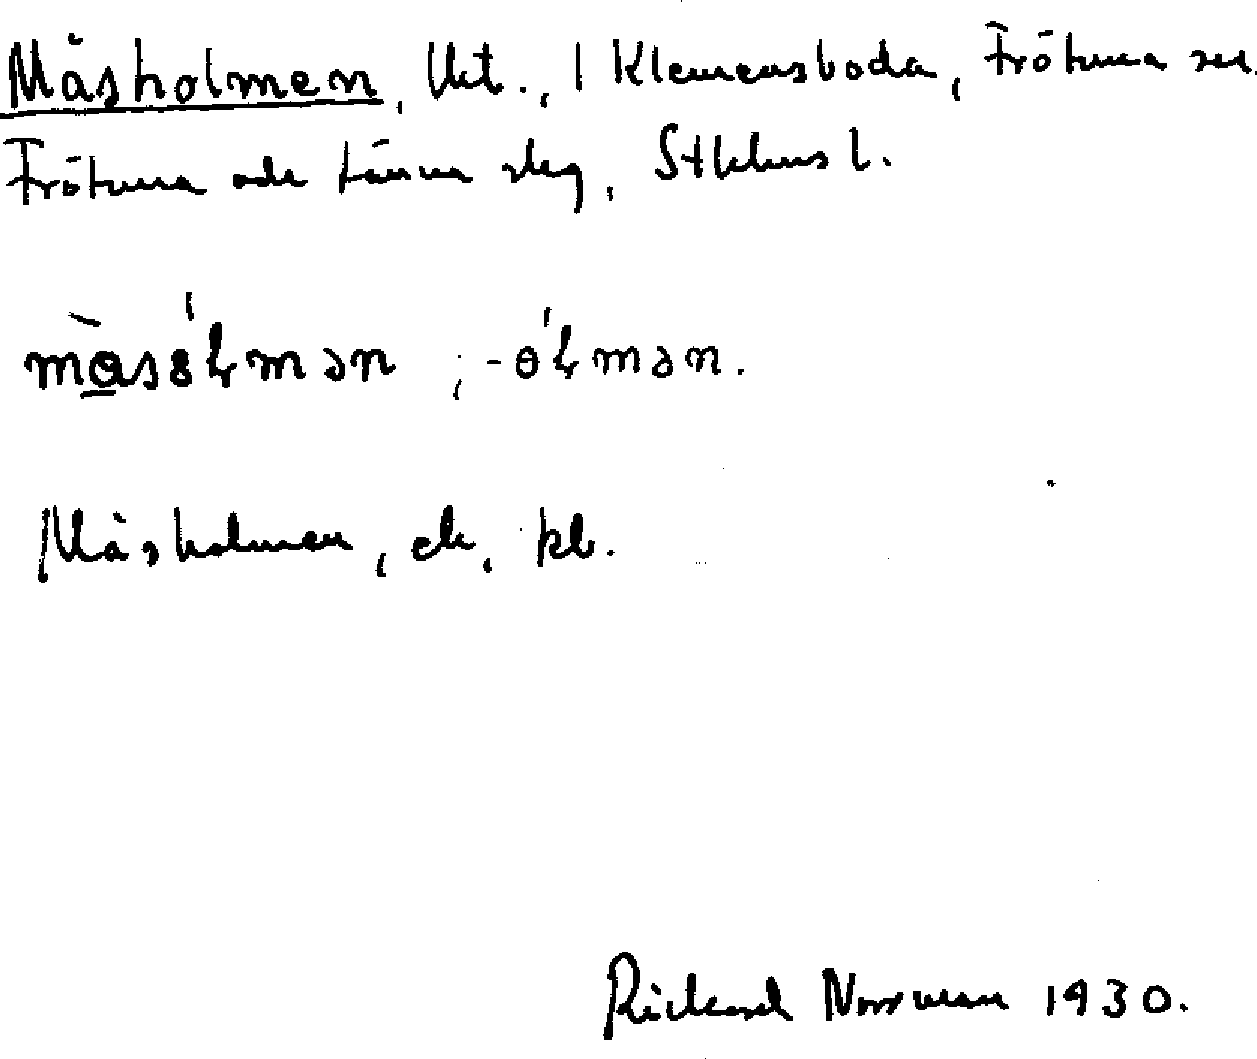 Måsholmen, Ukt., 1 Klemensboda, Frötuna sn
Frötuna och Länna slg, Stklms l.
må̀só̵ɫmən ; -ó̵ɫmən.
Måsholmen, ek. kb.
Rickard Norrman 1930.